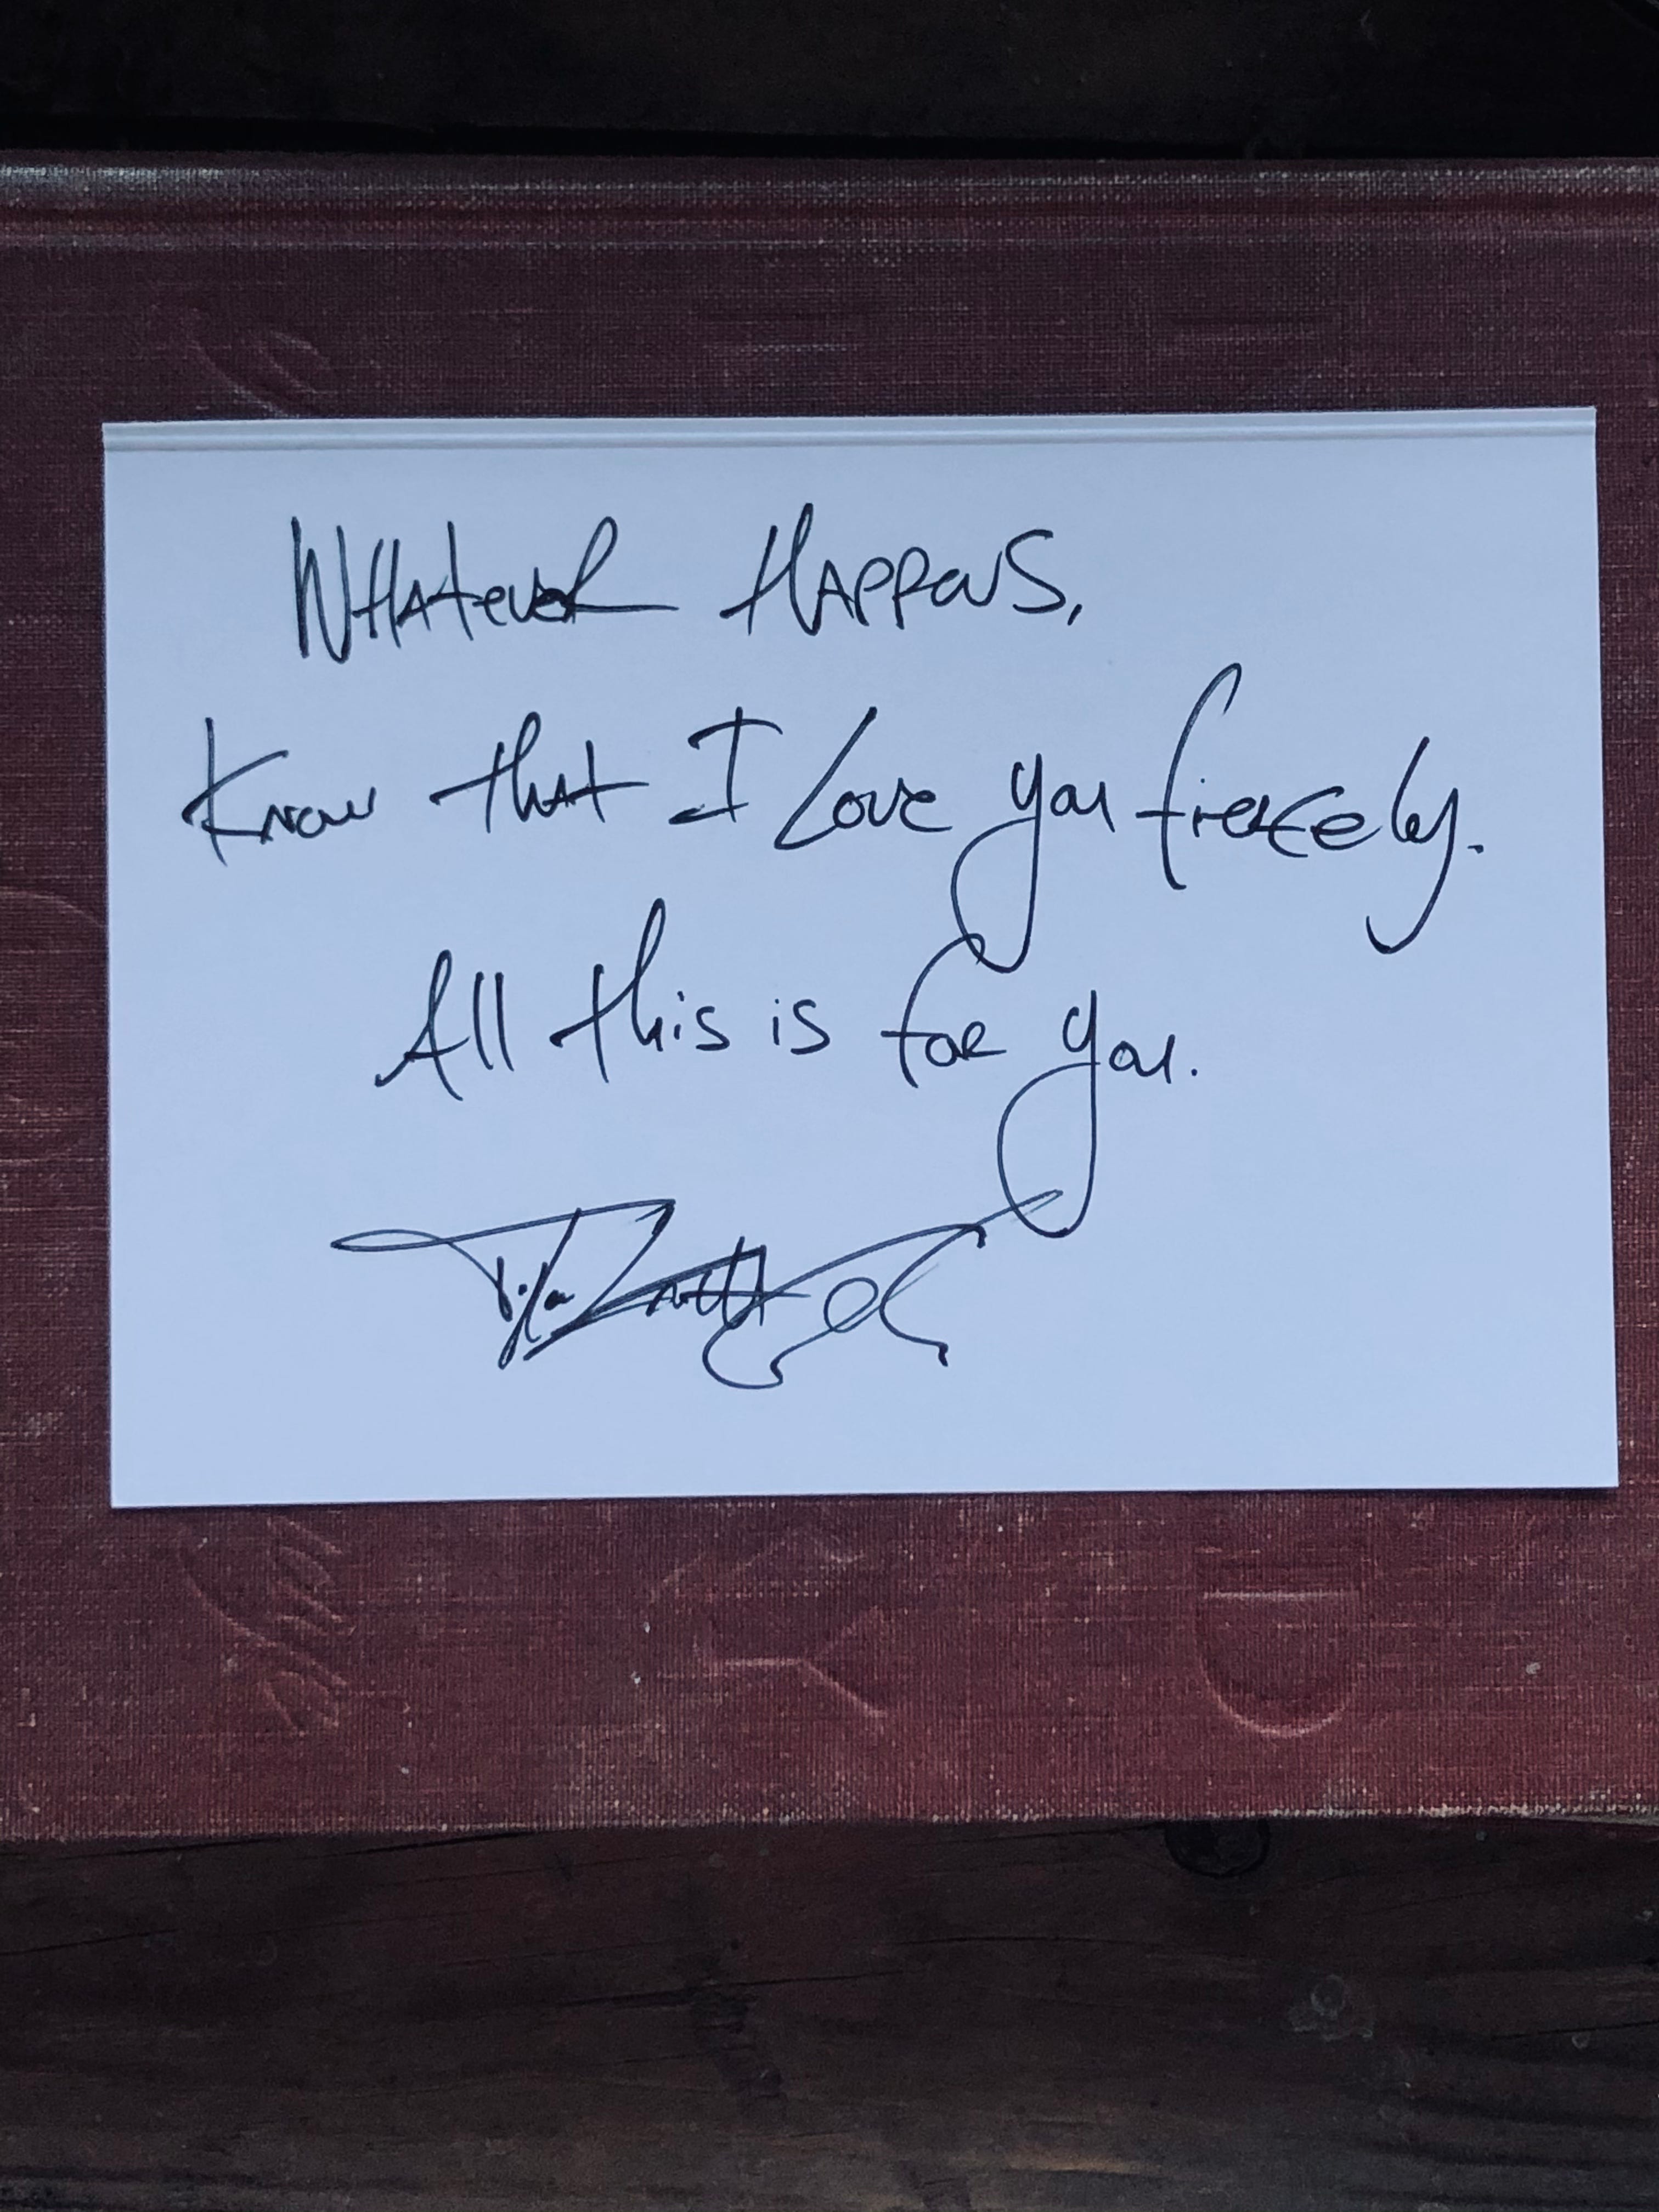 WHATever HAPPENS,
Know that I Love you fiercely.
All this is for you.